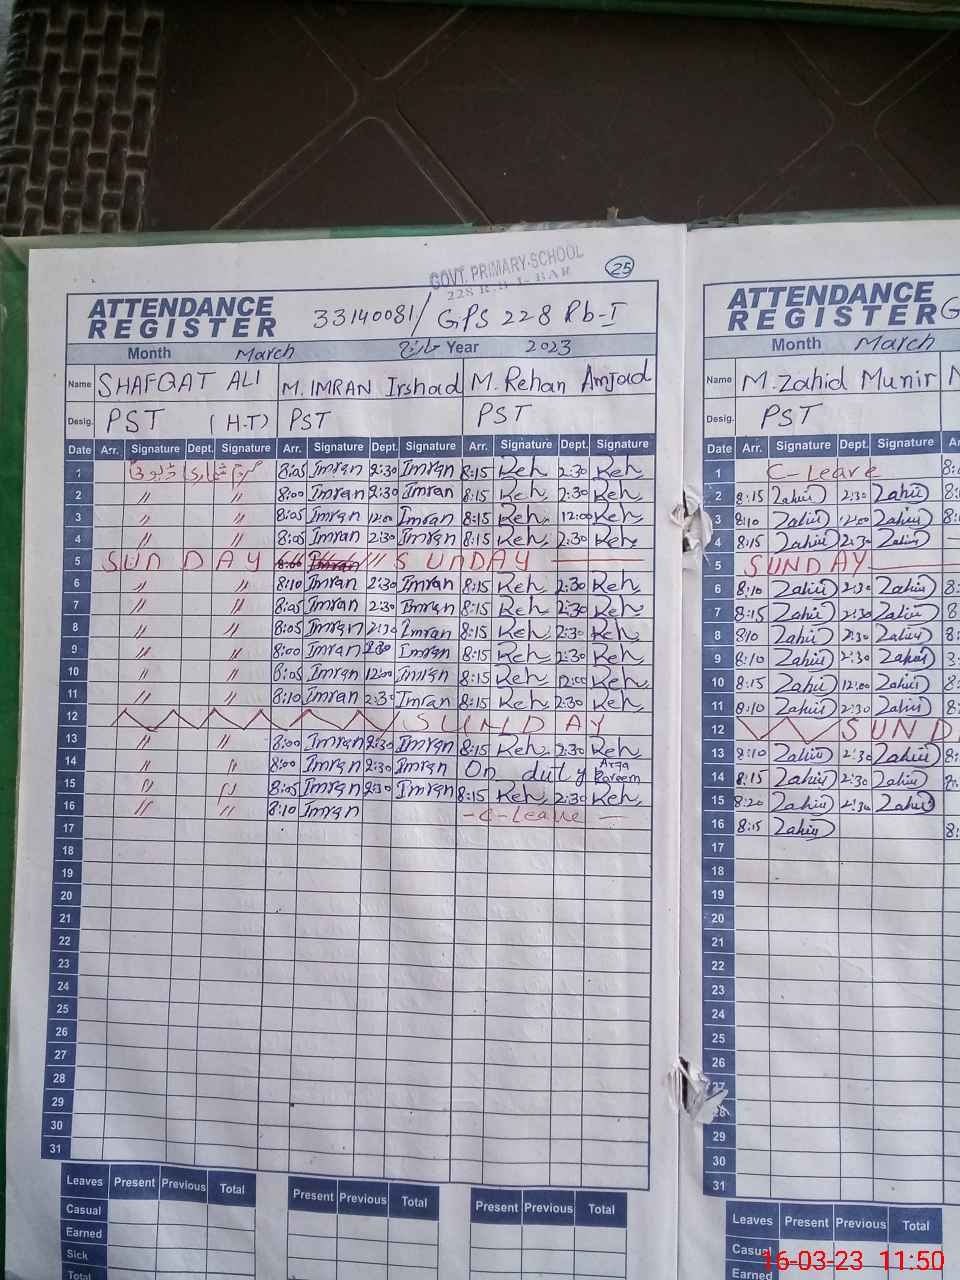 GOVT. PRIMARY SCHOOL
25
ATTENDANCE REGISTER 33140081/ GPS 228 Rb-I
Month March Year 2023
Name SHAFQAT ALI M. IMRAN Irshad M. Rehan Amjad
Desig. PST (H.T) PST PST
Date Arr. Signature Dept. Signature Arr. Signature Dept. Signature Arr. Signature Dept. Signature
1 8:05 Imran 2:30 Imran 8:15 Reh 2:30 Reh
2 〃 〃 8:00 Imran 2:30 Imran 8:15 Reh 2:30 Reh
3 〃 〃 8:05 Imran 12:00 Imran 8:15 Reh 12:00 Reh
4 〃 〃 8:05 Imran 2:30 Imran 8:15 Reh 2:30 Reh
5 SUNDAY SUNDAY
6 〃 〃 8:10 Imran 2:30 Imran 8:15 Reh 2:30 Reh
7 〃 〃 8:05 Imran 2:30 Imran 8:15 Reh 2:30 Reh
8 〃 〃 8:05 Imran 2:30 Imran 8:15 Reh 2:30 Reh
9 〃 〃 8:00 Imran 2:30 Imran 8:15 Reh 2:30 Reh
10 〃 〃 8:05 Imran 12:00 Imran 8:15 Reh 12:00 Reh
11 〃 〃 8:10 Imran 2:30 Imran 8:15 Reh 2:30 Reh
12 SUNDAY
13 〃 〃 8:00 Imran 2:30 Imran 8:15 Reh 2:30 Reh
14 〃 〃 8:00 Imran 2:30 Imran On duty
15 〃 〃 8:05 Imran 2:30 Imran 8:15 Reh 2:30 Reh
16 〃 〃 8:10 Imran - C-Leave -
17
18
19
20
21
22
23
24
25
26
27
28
29
30
31
Leaves Present Previous Total Present Previous Total Present Previous Total
Casual
Earned
Sick
Total
ATTENDANCE REGISTER G
Month March
Name M. Zahid Munir
Desig. PST
Date Arr. Signature Dept. Signature
1 C-Leave
2 8:15 Zahid 2:30 Zahid
3 8:10 Zahid 12:00 Zahid
4 8:15 Zahid 2:30 Zahid
5 SUNDAY
6 8:10 Zahid 2:30 Zahid
7 8:15 Zahid 2:30 Zahid
8 8:10 Zahid 2:30 Zahid
9 8:10 Zahid 2:30 Zahid
10 8:15 Zahid 12:00 Zahid
11 8:10 Zahid 2:30 Zahid
12 SUND
13 8:10 Zahid 2:30 Zahid
14 8:15 Zahid 2:30 Zahid
15 8:20 Zahid 2:30 Zahid
16 8:15 Zahid
17
18
19
20
21
22
23
24
25
26
27
28
29
30
31
Leaves Present Previous Total
Casual
Earned
16-03-23 11:50